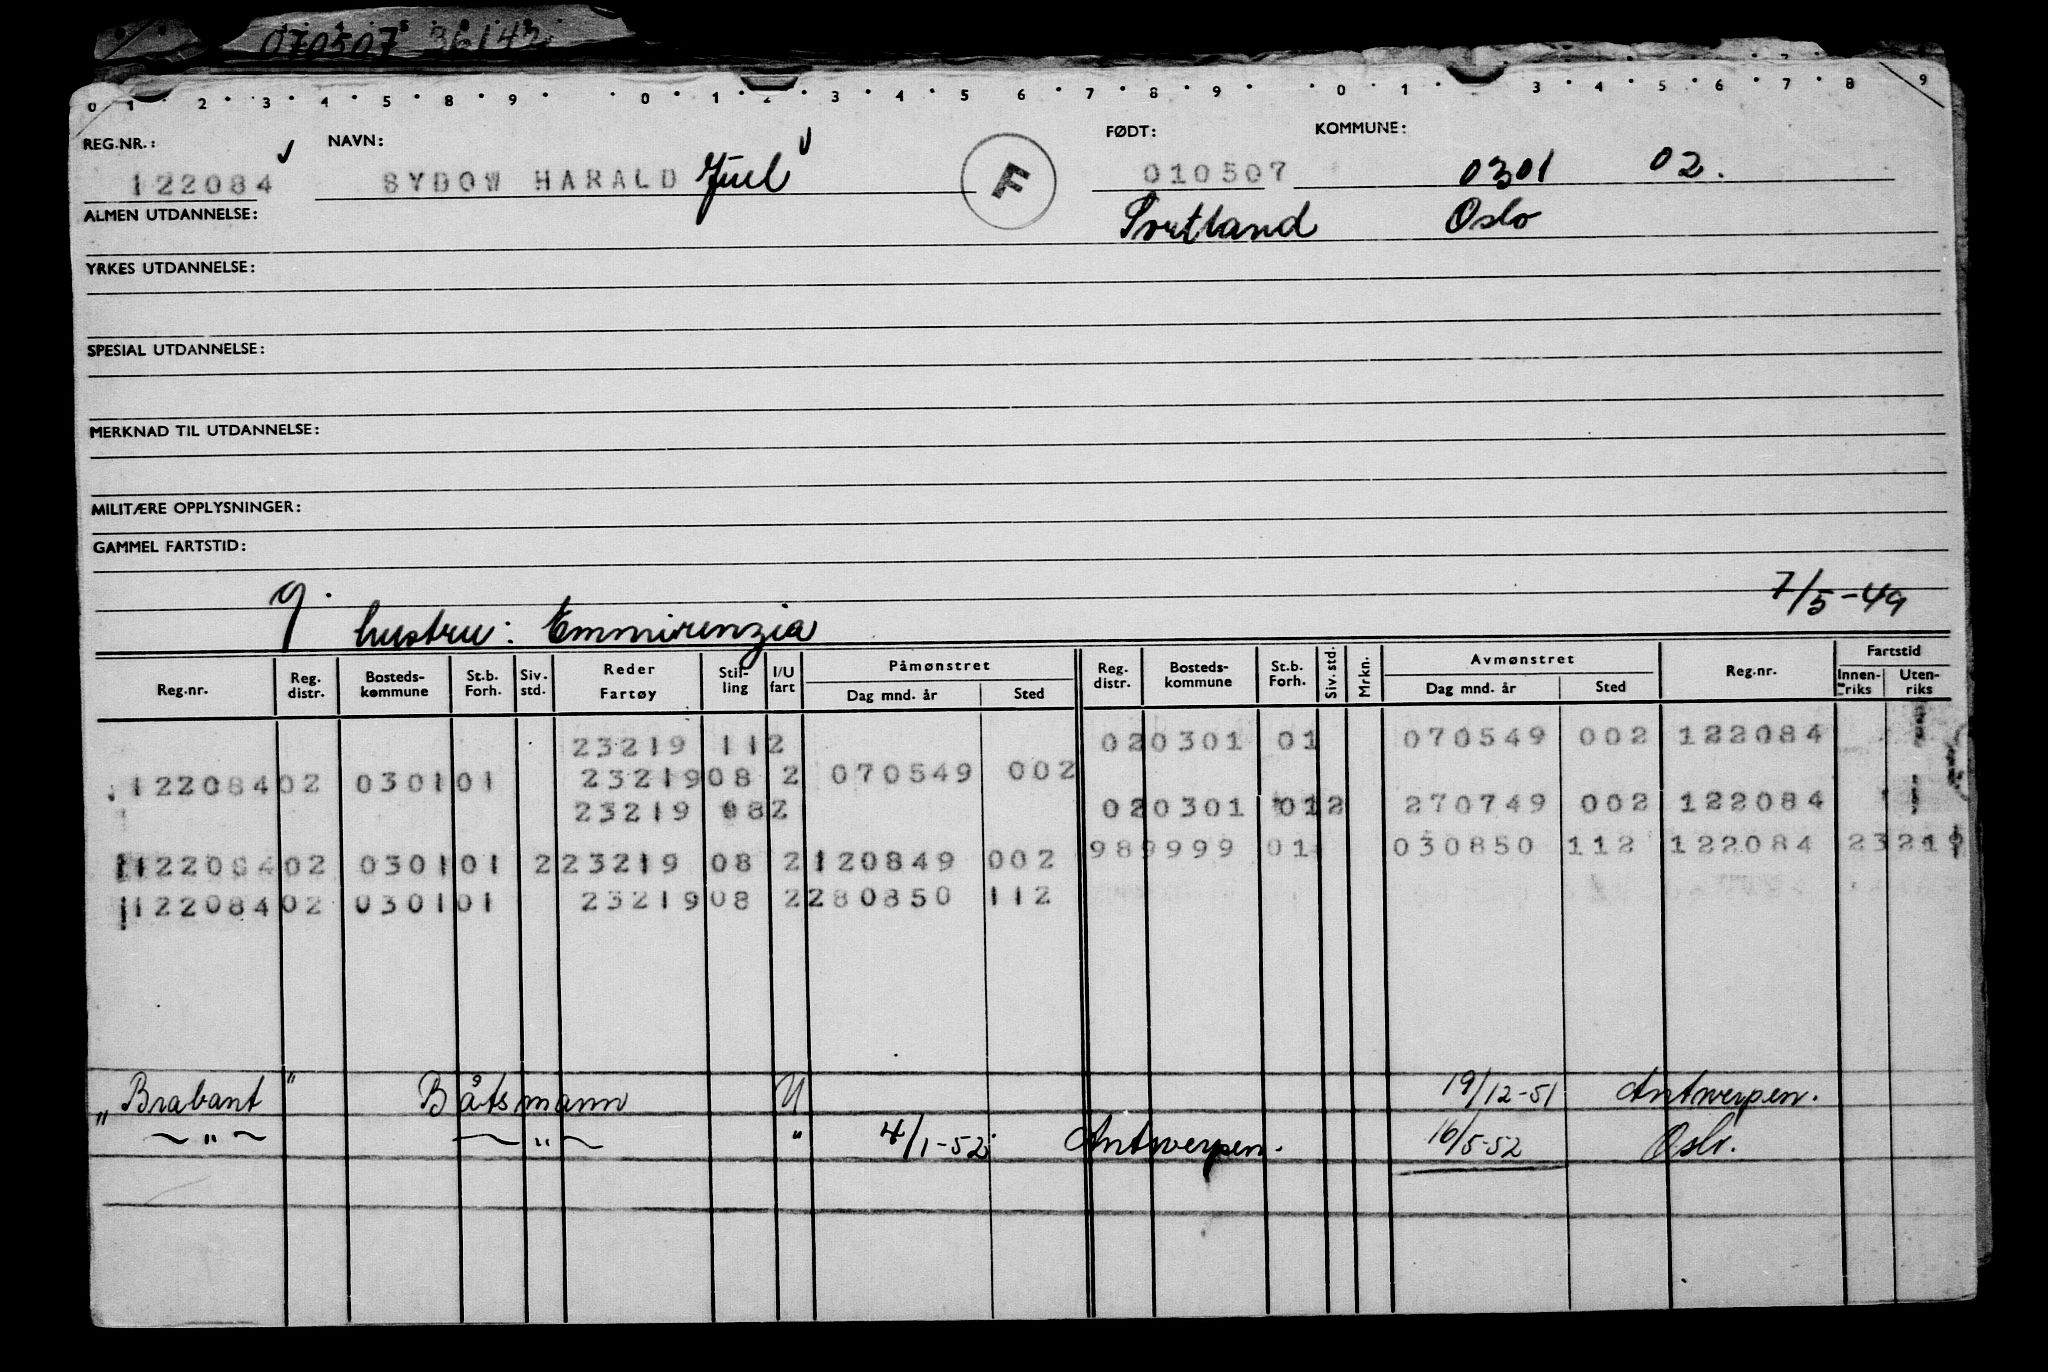 070507 36142
0 1 2 3 4 5 8 9 0 1 2 3 4 5 6 7 8 9 0 1 3 4 5 6 7 8 9
REG.NR.: NAVN: FØDT: KOMMUNE:
122084 SYDOW HARALD Juel F 010507 0301 02.
ALMEN UTDANNELSE: Oslo
YRKES UTDANNELSE:
SPESIAL UTDANNELSE:
MERKNAD TIL UTDANNELSE:
MILITÆRE OPPLYSNINGER:
GAMMEL FARTSTID:
g. hustru: Emmirenzia 7/5-49
Reg.nr. Reg. distr. Bosteds-kommune St.b. Forh. Siv. std. Reder Fartøy Stil-ling I/U fart Påmønstret Dag mnd. år Sted Reg. distr. Bosteds-kommune St.b. Forh. Siv. std. Mrkn. Avmønstret Dag mnd. år Sted Reg.nr. Fartstid Innen-riks Uten-riks
23219 112 020301 01 070549 002 122084
122084 02 0301 01 23219 08 2 070549 002
23219 082 020301 012 270749 002 122084
122084 02 0301 01 2 23219 08 2 120849 002 989999 01 030850 112 122084 23219
122084 02 0301 01 23219 08 2 280850 112
„Brabant" Båtsmann U 19/12-51 Antwerpen.
~ " ~ ~ " ~ " 4/1-52 Antwerpen. 16/5-52 Oslo.